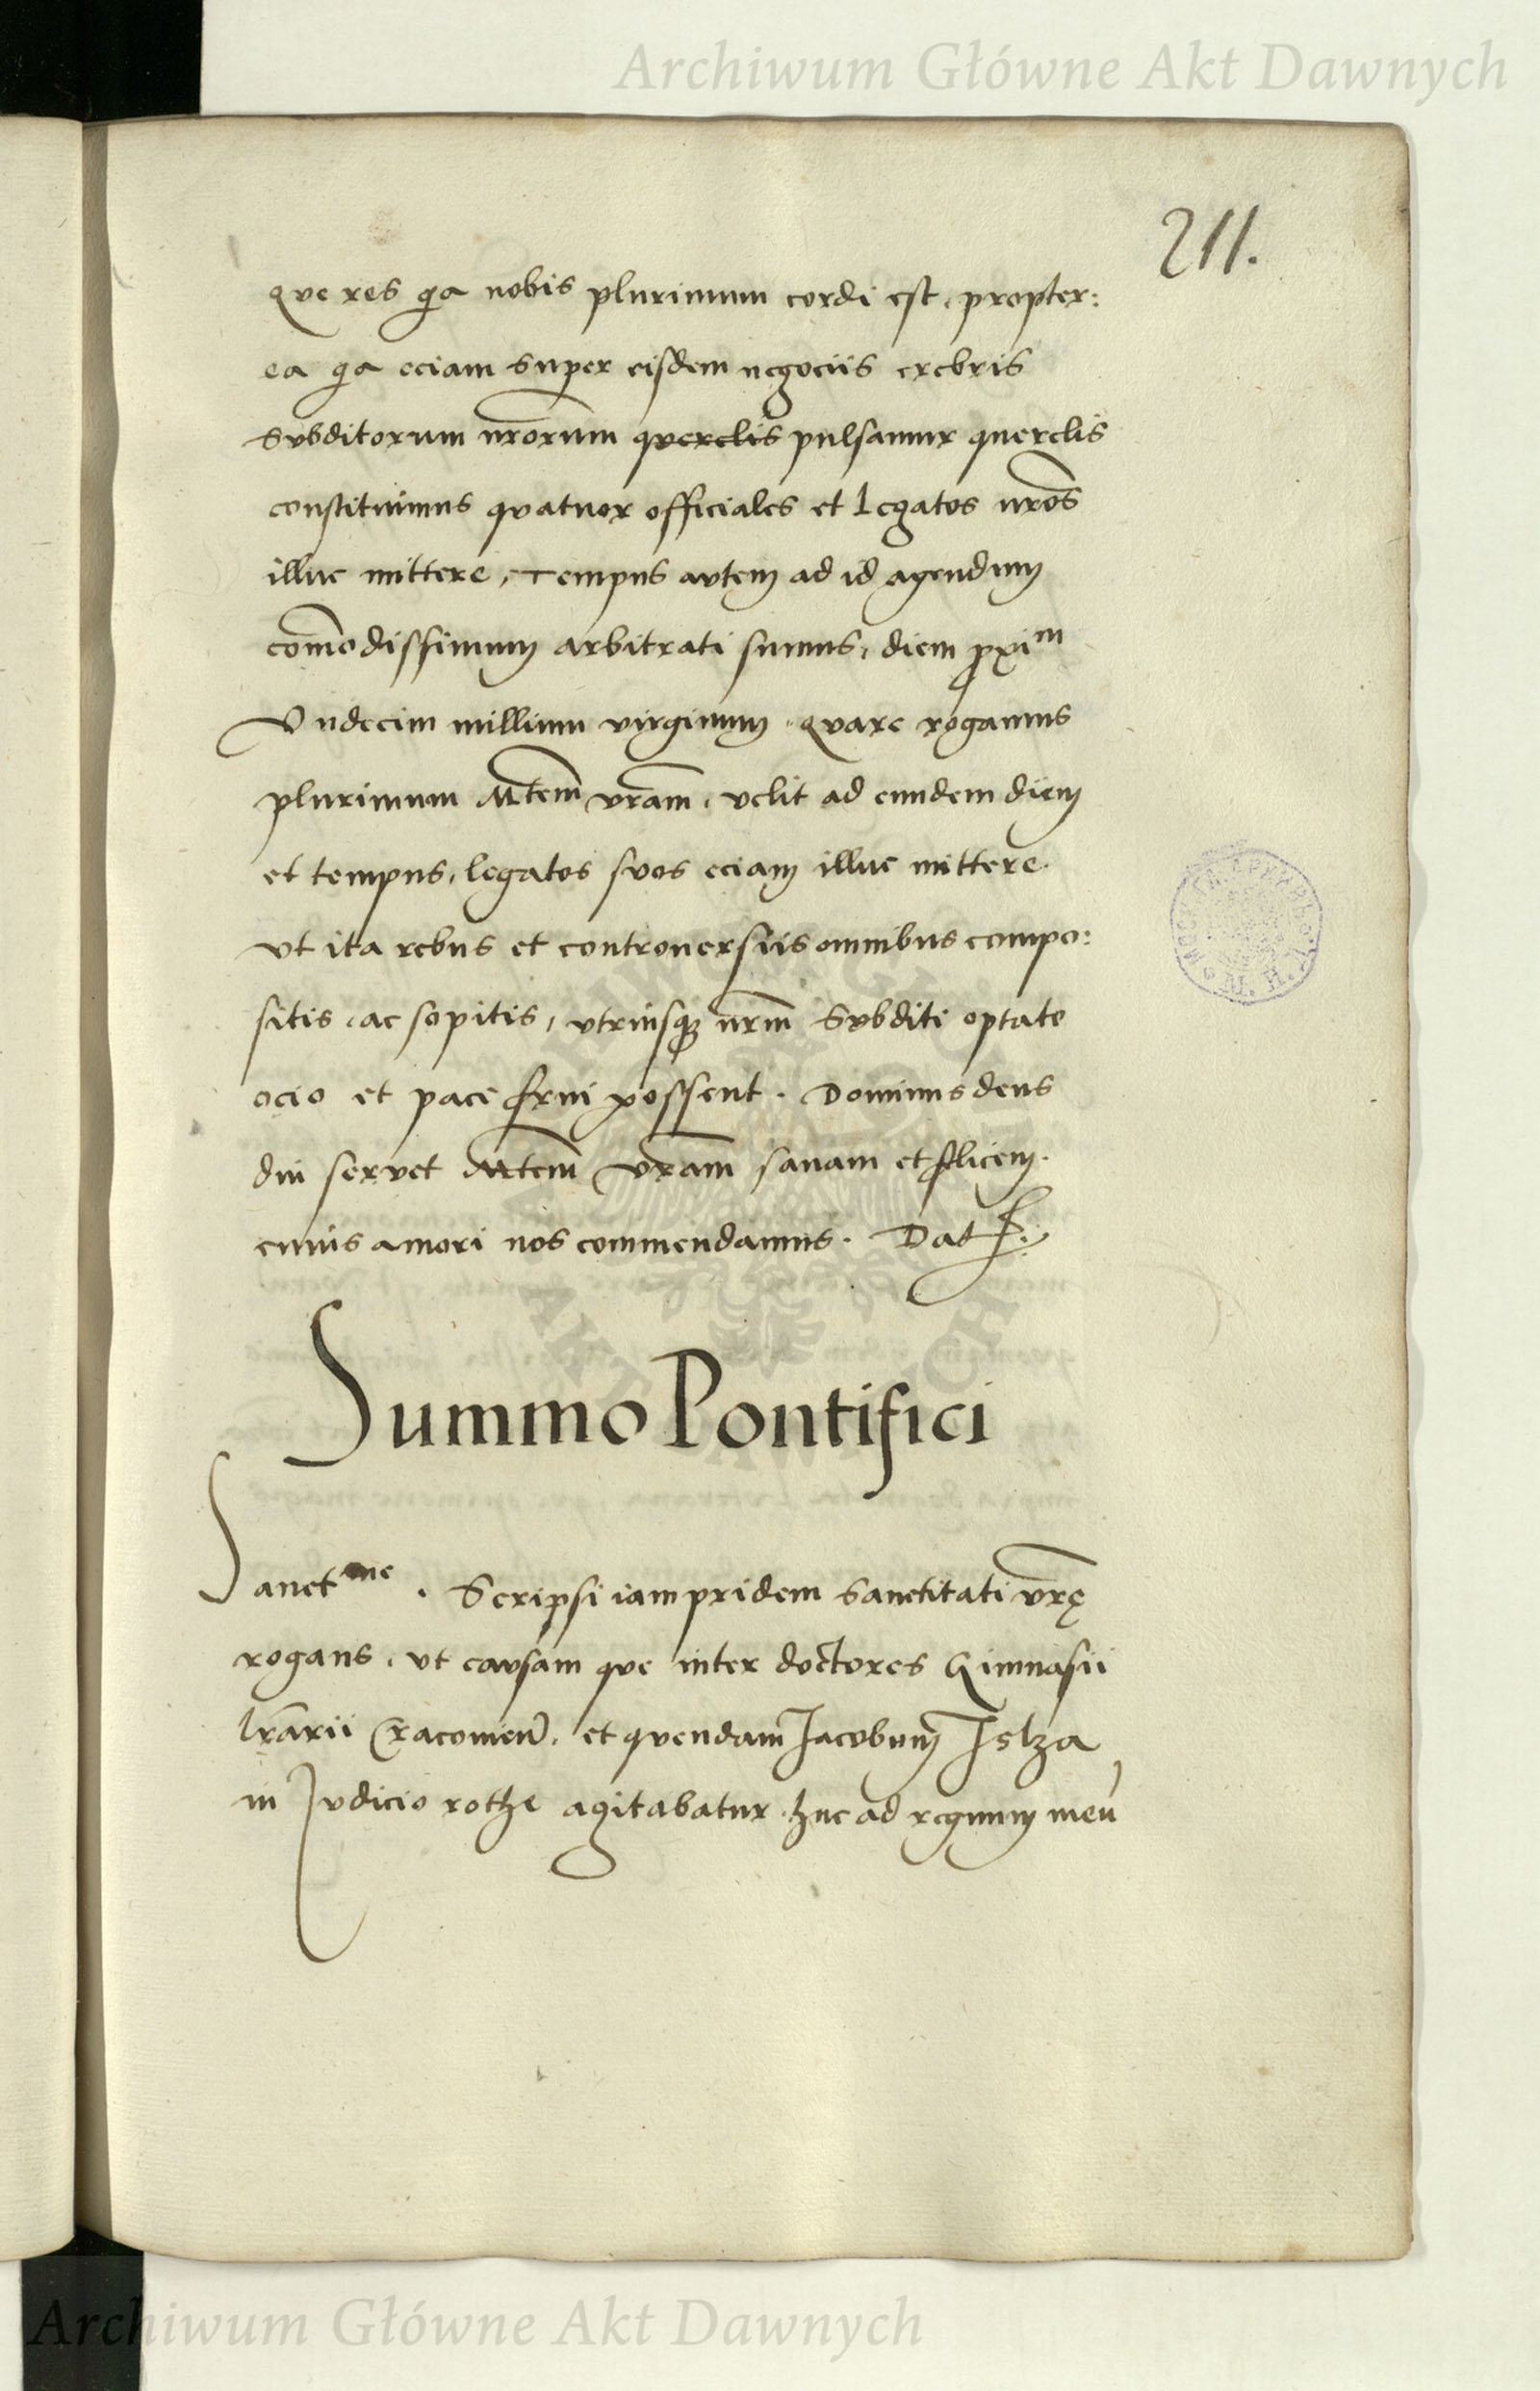 Archiwum Główne Akt Dawnych
211.
que res qa nobis plurimum cordi est, propter:
ea qa eciam super eisdem negociis crebris
Subditorum nrorum querelis pulsamur querelis
constituimus quatuor officiales et Legatos nros
illuc mittere, Tempus autem ad id agendum
comodissimum arbitrati sumus, diem proxim
Undecim millium virginum. quare rogamus
plurimum Mtem vram, velit ad eundem diem
et tempus, legatos suos eciam illuc mittere.
ut ita rebus et controversiis omnibus compo:
sitis, ac sopitis, utriusq nrm Subditi optato
ocio et pace frui possent. Dominus deus
diu servet Mtem vram sanam et felicem.
cuius amori nos commendamus. Dat
Summo Pontifici
Sanctme. Scripsi iam pridem Sanctitati vrę
rogans, ut causam que inter doctores Gimnasii
lrarii Cracovien, et quendam Jacobum Islza
in Judicio rothe agitabatur huc ad regnum meu
Archiwum Główne Akt Dawnych